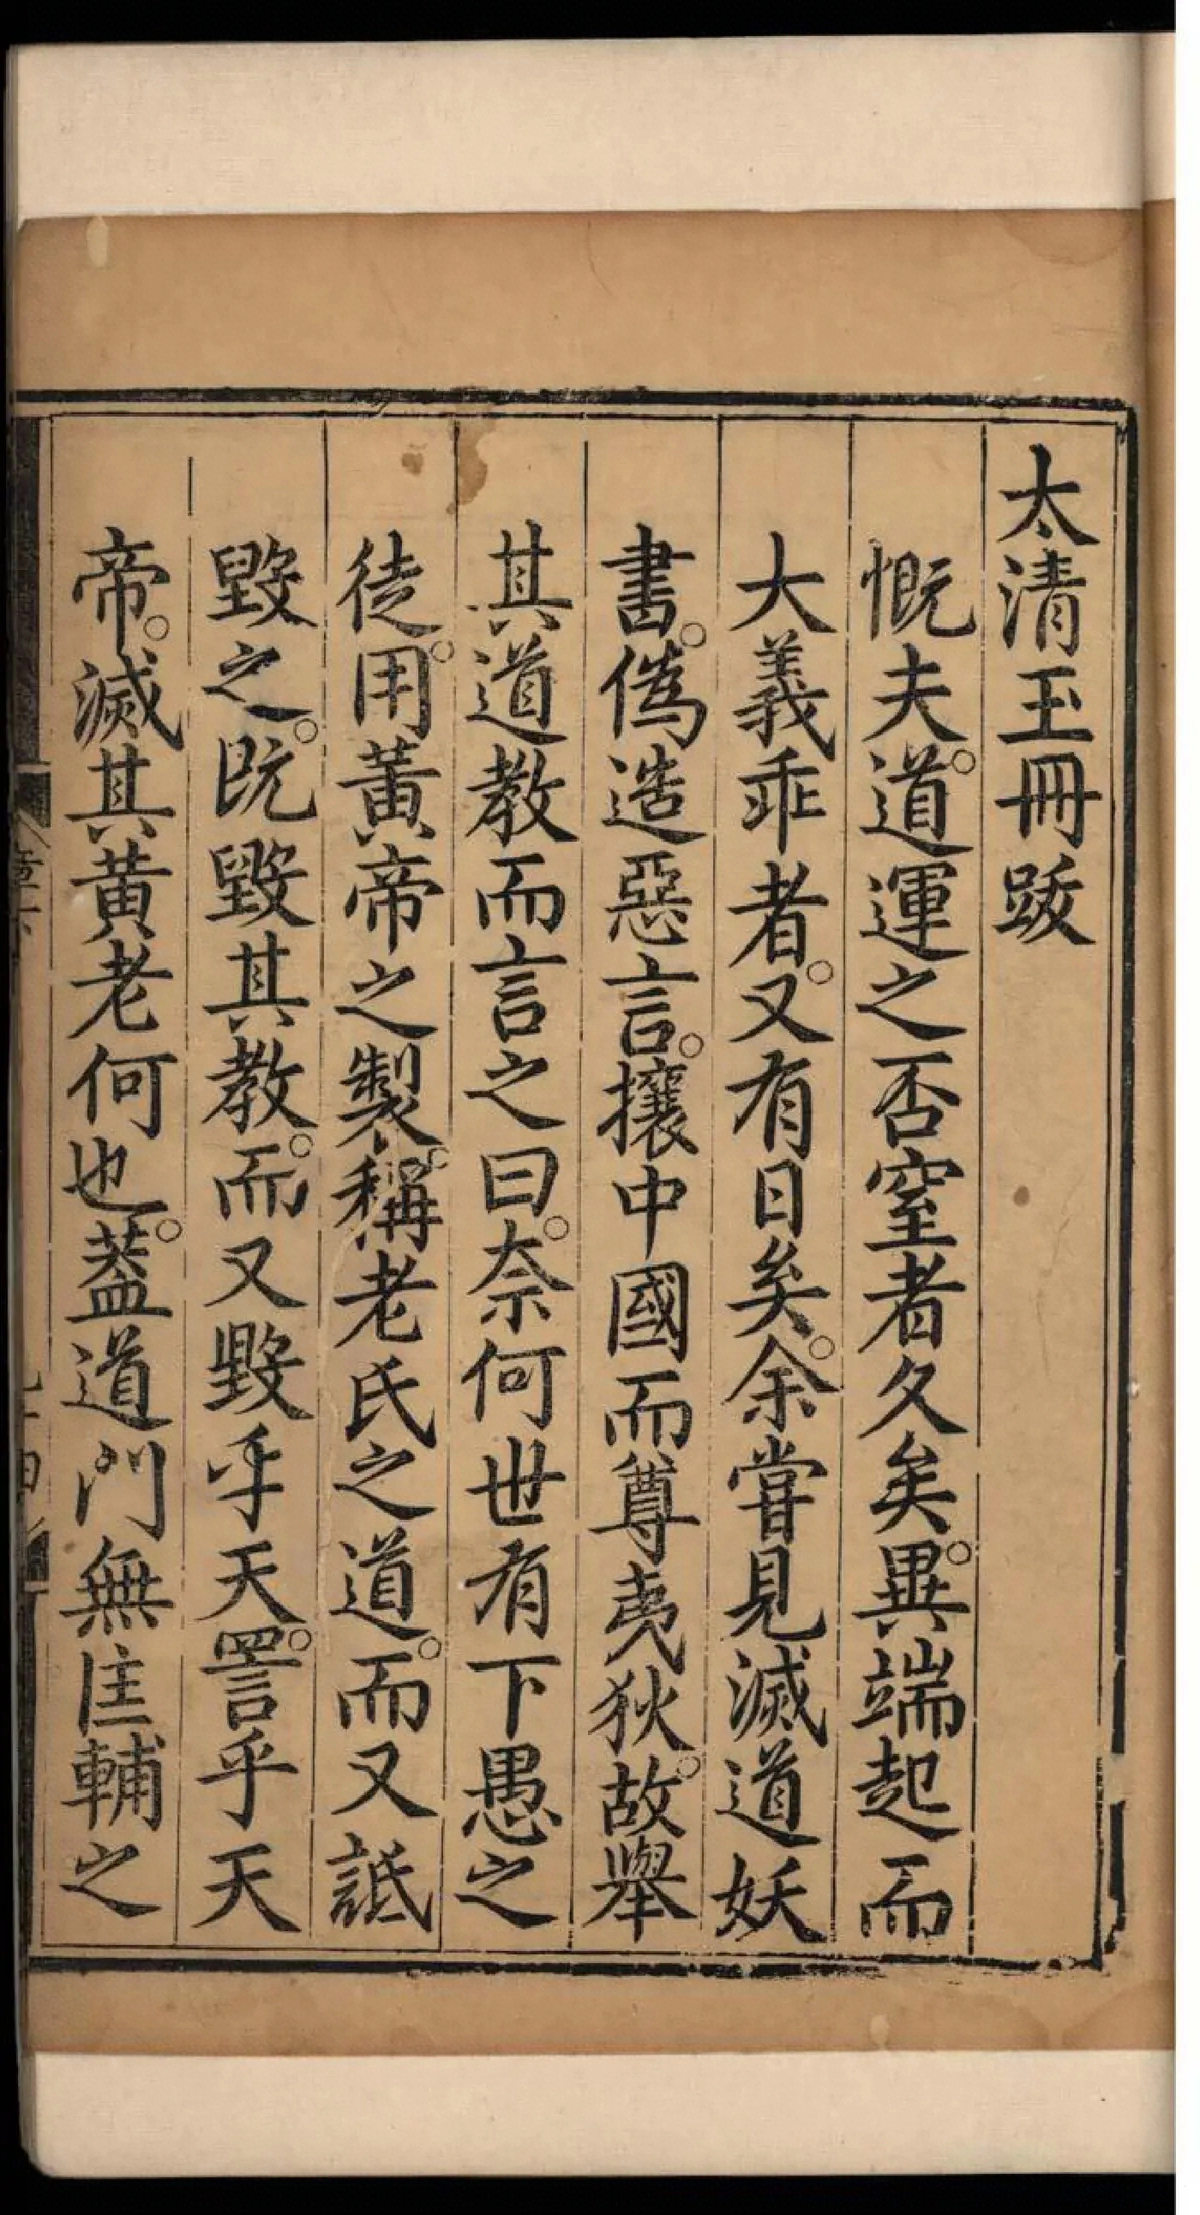 太清玉冊跋
慨夫。道運之否窒者久矣。異端起而
大義乖者。又有日矣。余嘗見滅道妖
書。偽造惡言。攘中國而尊夷狄。故舉
其道教而言之曰。奈何世有下愚之
徒。用黃帝之製。稱老氏之道。而又詆
毀之。既毀其教。而又毀乎天。詈乎天
帝。滅其黃老何也。蓋道門無匡輔之